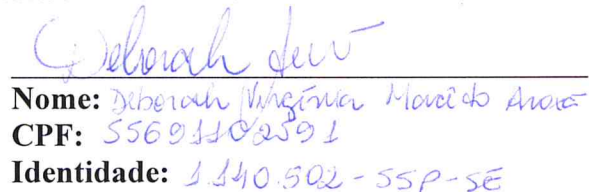 Deborah
Nome: Deborah Virgínia Macêdo
CPF: 55691102591
Identidade: 1.140.502-SSP-SE